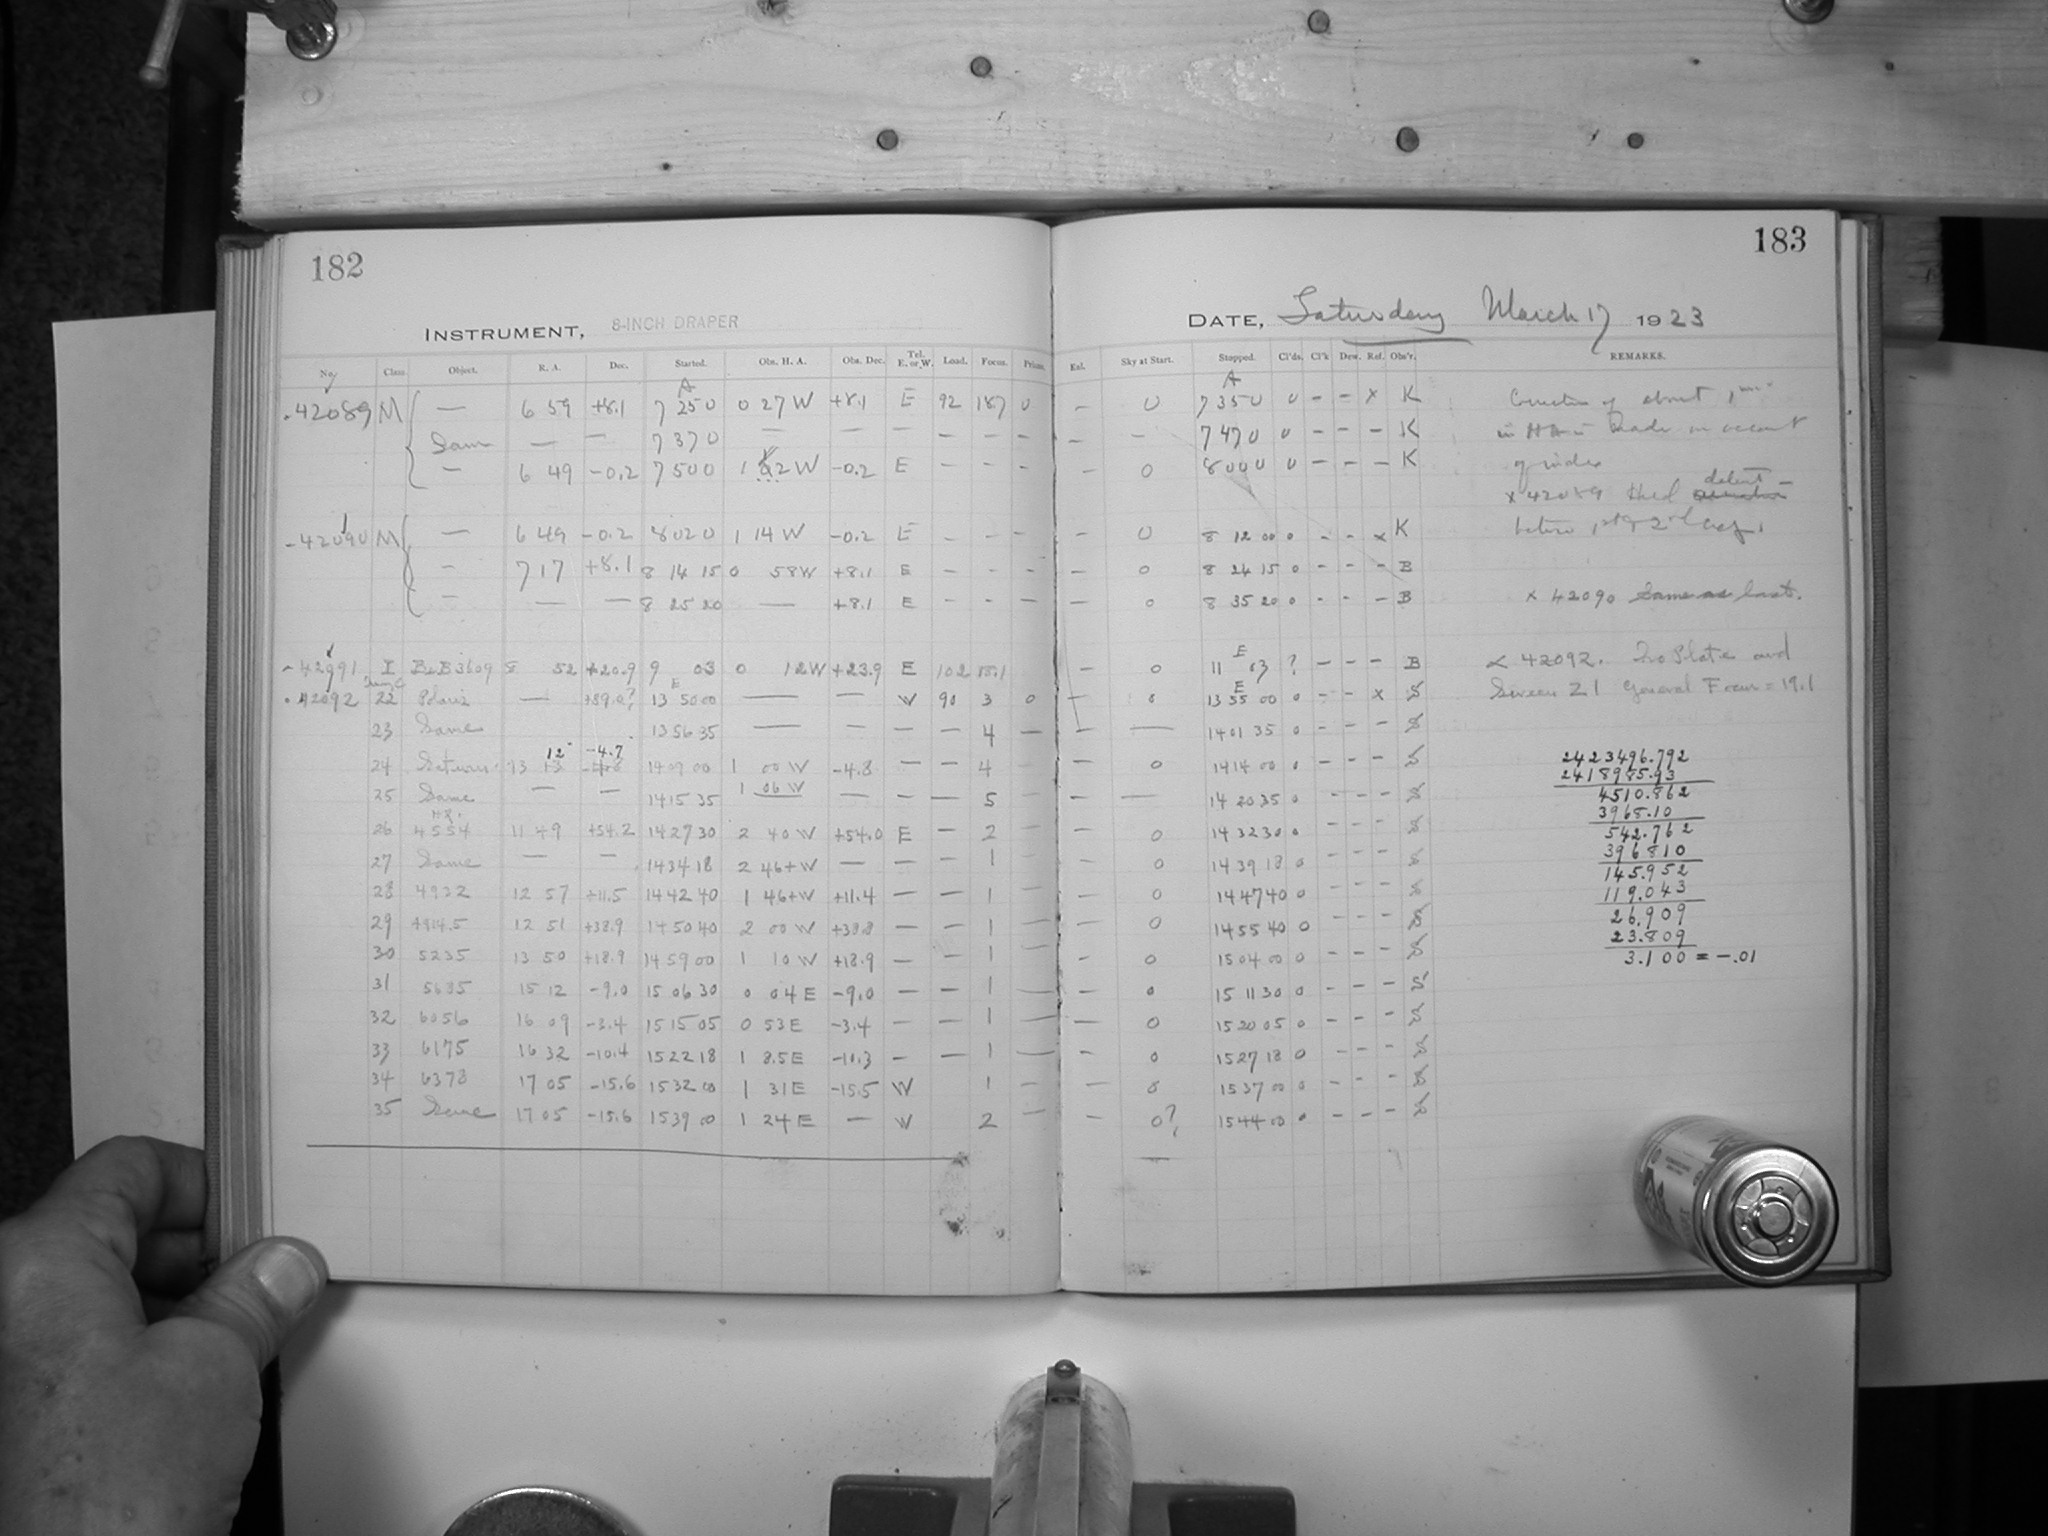 182
183
INSTRUMENT, 8-INCH DRAPER
DATE, Saturday March 17 1923
No. Class Object. R. A. Dec. Started. Obs. H. A. Obs. Dec. Tel. E. or W. Load. Focus. Prism. Enl. Sky at Start. Stopped. Cl'ds. Cl'k Dew. Ref. Obs'r. REMARKS.
A A
42089 M — 6 59 +8.1 7 25 0 0 27 W +8.1 E 92 187 0 — 0 7 35 0 0 - - x K of about 1
Same — — 7 37 0 — — — — — — — — 7 47 0 0 - - - K made on account
— 6 49 -0.2 7 50 0 1 02 W -0.2 E - - - — 0 8 00 0 0 - - - K of index
x 42089 Used detent
42090 M — 6 49 -0.2 8 02 0 1 14 W -0.2 E - - - 0 8 12 00 0 - - x K before 1st & 2nd
— 7 17 +8.1 8 14 15 0 58 W +8.1 E - - - — 0 8 24 15 0 - - - B
— — — 8 25 20 — +8.1 E - - - — 0 8 35 20 0 - - - B x 42090 Same as last.
42091 I 8 52 +20.9 9 03 0 12 W +23.9 E 102 — 0 11 E 03 ? - - - B x 42092. No Plate and
42092 22 Polaris — +89.0? E 13 50 00 — — W 90 3 0 — 0 E 13 55 00 0 - - x S Screen 21 General Focus = 19.1
23 Same 13 56 35 — — — — 4 — — — 14 01 35 0 - - - S
12 -4.7
24 Saturn 13 13 14 09 00 1 00 W -4.8 — — 4 — 0 14 14 00 0 - - - S
25 Same — — 14 15 35 1 06 W — — — 5 — — 14 20 35 0 - - - S
H.R.
26 4554 11 49 +54.2 14 27 30 2 40 W +54.0 E — 2 0 14 32 30 0 - - - S
27 Same — — 14 34 18 2 46+ W — — — 1 — — 0 14 39 18 0 - - - S
28 4932 12 57 +11.5 14 42 40 1 46+ W +11.4 — — 1 — — 0 14 47 40 0 - - - S
29 4914.5 12 51 +38.9 14 50 40 2 00 W +38.8 — — 1 — — 0 14 55 40 0 - - - S
30 5235 13 50 +18.9 14 59 00 1 10 W +18.9 — — 1 — 0 15 04 00 0 - - - S
31 5685 15 12 -9.0 15 06 30 0 04 E -9.0 — — 1 — — 0 15 11 30 0 - - - S
32 6056 16 09 -3.4 15 15 05 0 53 E -3.4 — — 1 — — 0 15 20 05 0 - - - S
33 6175 16 32 -10.4 15 22 18 1 8.5 E -10.3 — — 1 — — 0 15 27 18 0 - - - S
34 6378 17 05 -15.6 15 32 00 1 31 E -15.5 W 1 — — 0 15 37 00 0 - - - S
35 Same 17 05 -15.6 15 39 00 1 24 E — W 2 — — 0? 15 44 00 0 - - - S
2423496.792
2418985.93
4510.862
3968.10
542.762
396810
145.952
119.043
26.909
23.809
3.100 = -.01